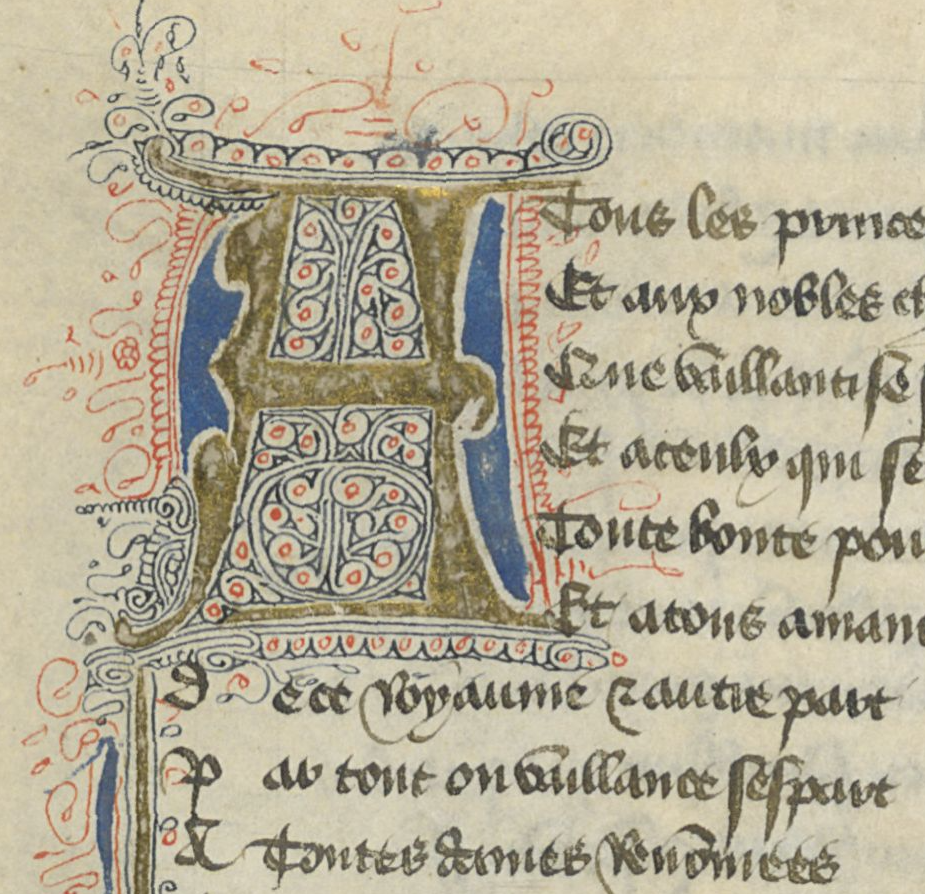 A Tous les prince
Et aux nobles et
Que vaillantise
Et a ceulx qui se
Toute bonte pou
Et a tous amans
De ce Royaume & autre part
Par tout ou vaillance sespart
A Toutes dames Renõmees